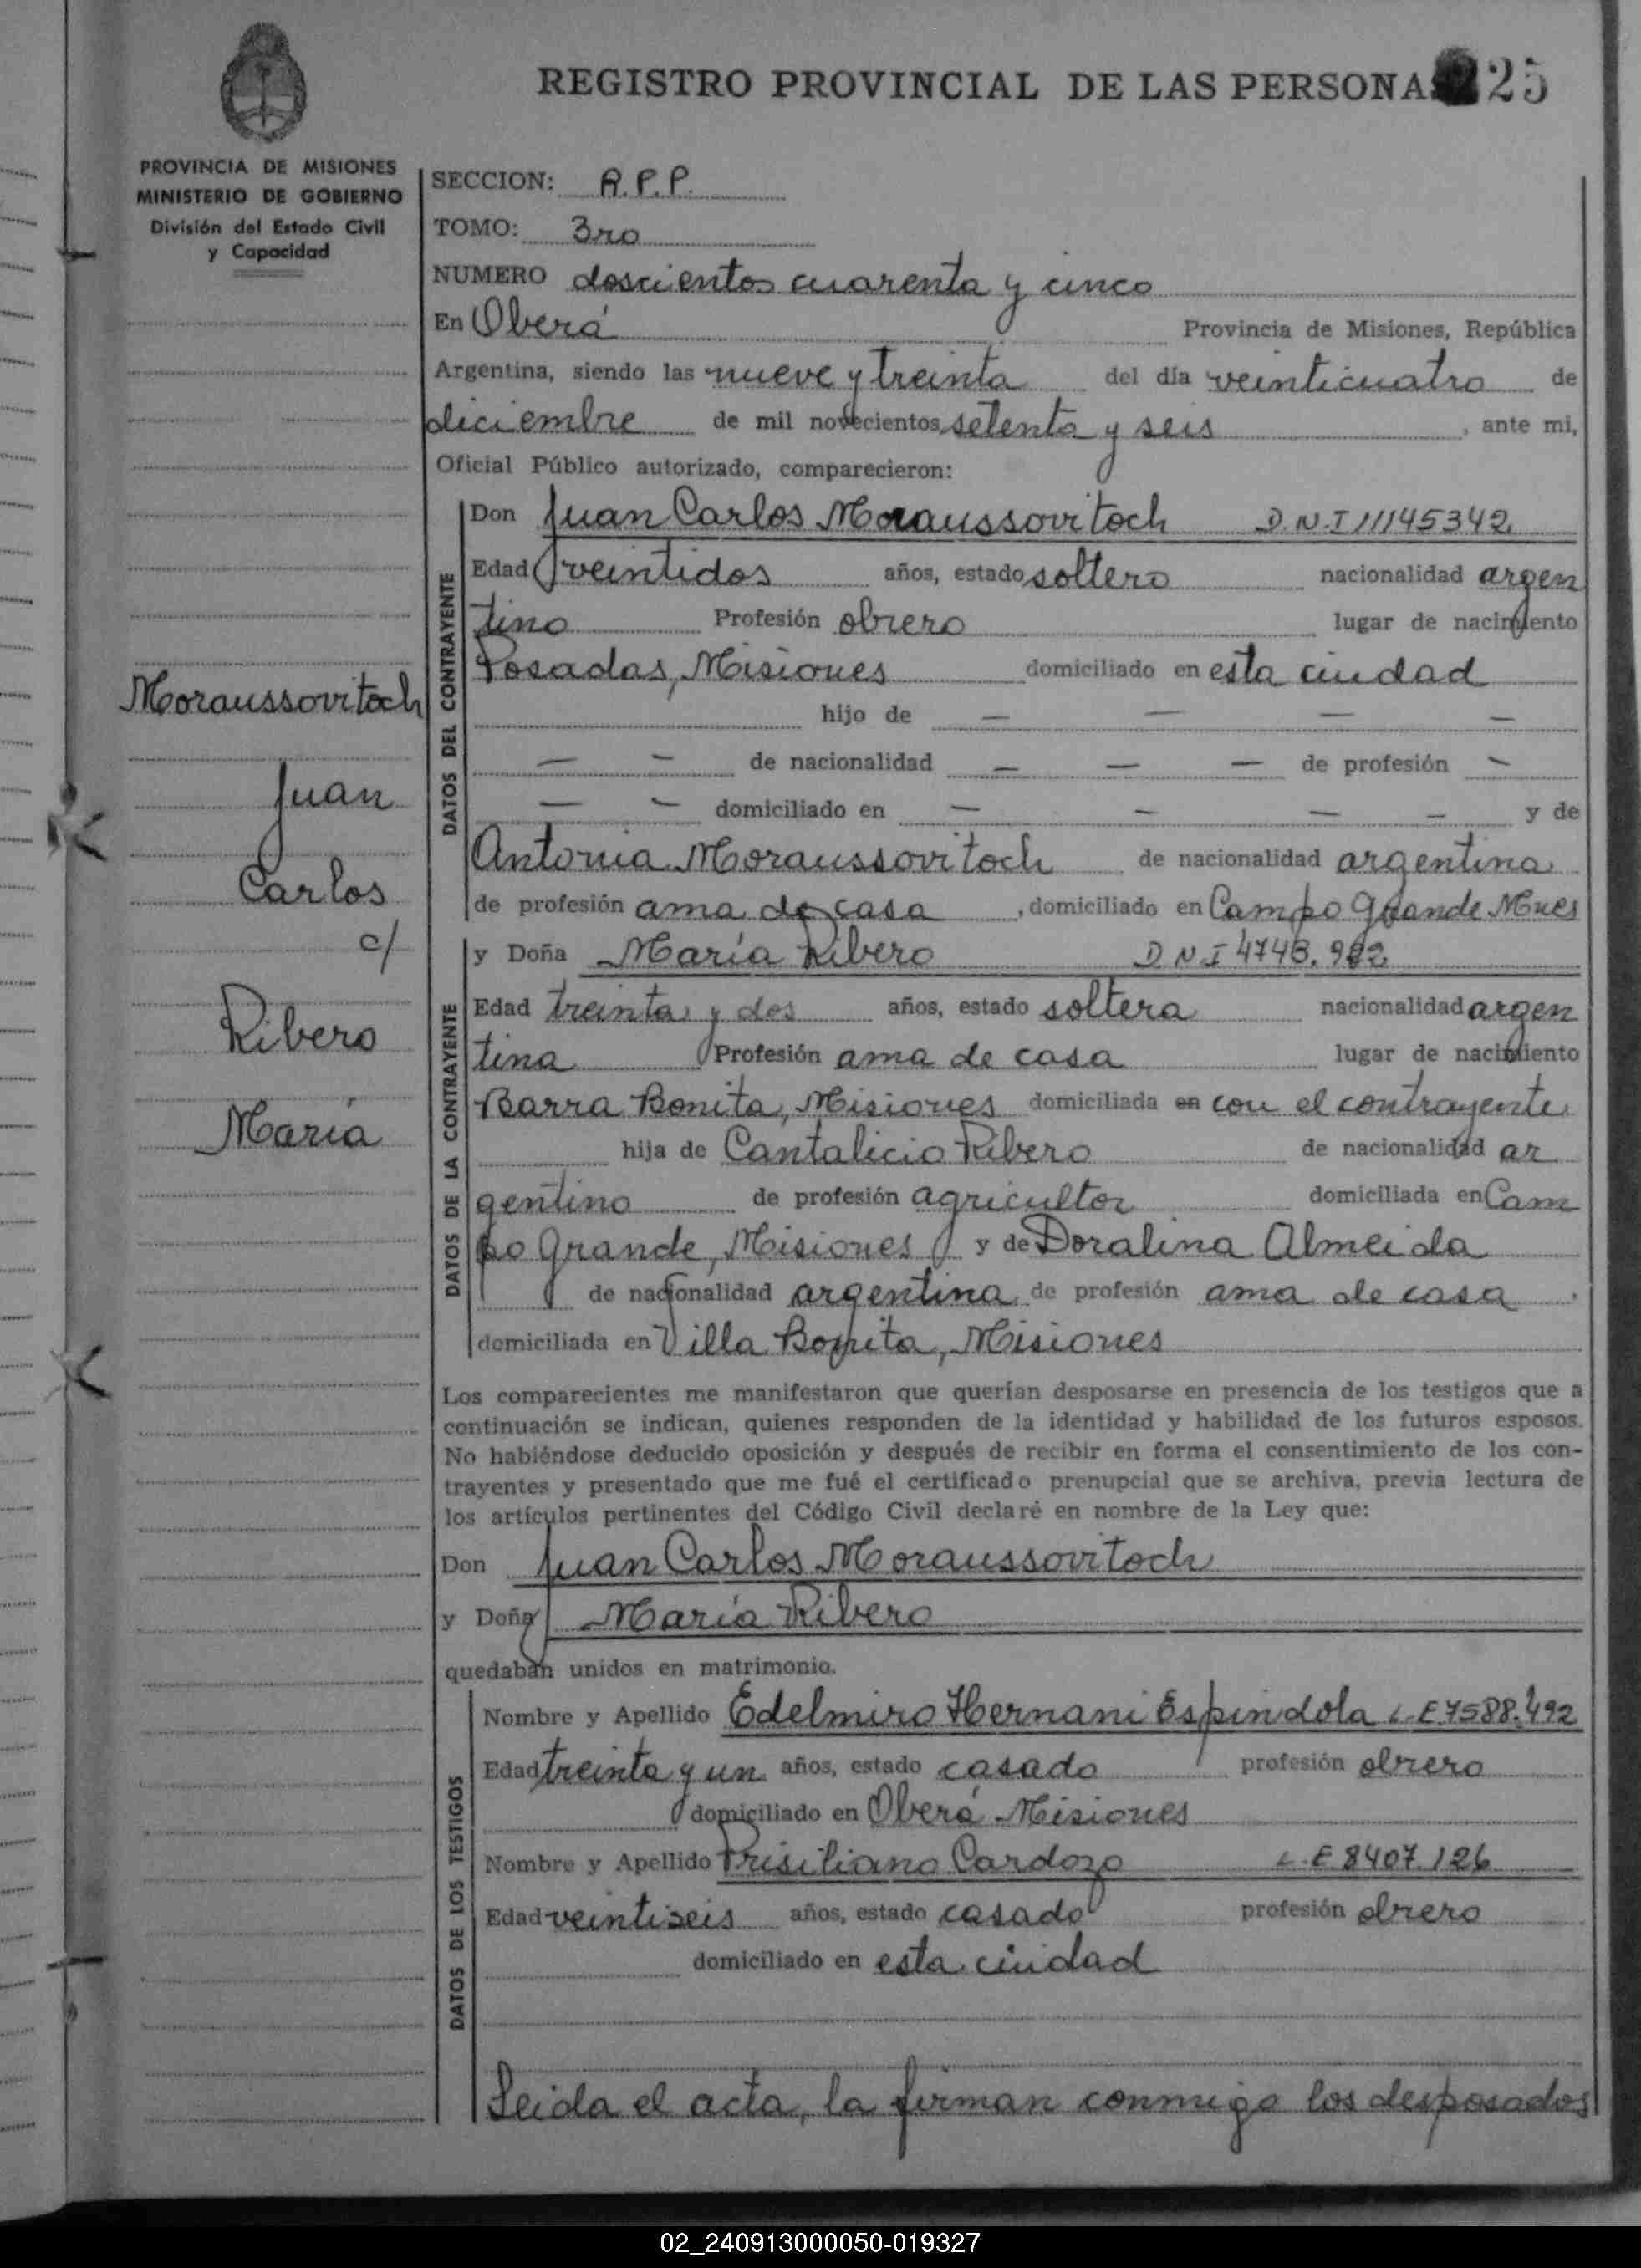 REGISTRO PROVINCIAL DE LAS PERSONAS 25
PROVINCIA DE MISIONES
MINISTERIO DE GOBIERNO
División del Estado Civil
y Capacidad
SECCION: A.P.P.
TOMO: 3ro
NUMERO doscientos cuarenta y cinco
En Oberá Provincia de Misiones, República
Argentina, siendo las nueve y treinta del día veinticuatro de
diciembre de mil novecientos setenta y seis, ante mi,
Oficial Público autorizado, comparecieron:
DATOS DEL CONTRAYENTE
Don Juan Carlos Moraussovitoch D.N.I 11145342
Edad veintidos años, estado soltero nacionalidad argen
tino Profesión obrero lugar de nacimiento
Posadas, Misiones domiciliado en esta ciudad
hijo de — — — —
— — de nacionalidad — — — de profesión —
— — domiciliado en — — — — y de
Antonia Moraussovitoch de nacionalidad argentina
de profesión ama de casa, domiciliado en Campo Grande Mnes
Moraussovitoch
Juan
Carlos
c/
Ribero
María
DATOS DE LA CONTRAYENTE
y Doña María Ribero D N I 4743.982
Edad treinta y dos años, estado soltera nacionalidad argen
tina Profesión ama de casa lugar de nacimiento
Barra Bonita, Misiones domiciliada en con el contrayente
hija de Cantalicio Ribero de nacionalidad ar
gentino de profesión agricultor domiciliada en Cam
po Grande, Misiones y de Doralina Almeida
de nacionalidad argentina de profesión ama de casa.
domiciliada en Villa Bonita, Misiones
Los comparecientes me manifestaron que querían desposarse en presencia de los testigos que a
continuación se indican, quienes responden de la identidad y habilidad de los futuros esposos.
No habiéndose deducido oposición y después de recibir en forma el consentimiento de los con-
trayentes y presentado que me fué el certificado prenupcial que se archiva, previa lectura de
los artículos pertinentes del Código Civil declaré en nombre de la Ley que:
Don Juan Carlos Moraussovitoch
y Doña María Ribero
quedaban unidos en matrimonio.
DATOS DE LOS TESTIGOS
Nombre y Apellido Edelmiro Hernani Espindola L.E 7588.492
Edad treinta y un años, estado casado profesión obrero
domiciliado en Oberá Misiones
Nombre y Apellido Prisiliano Cardozo L.E 8407.126
Edad veintiseis años, estado casado profesión obrero
domiciliado en esta ciudad
Leida el acta, la firman conmigo los desposados
02_240913000050-019327